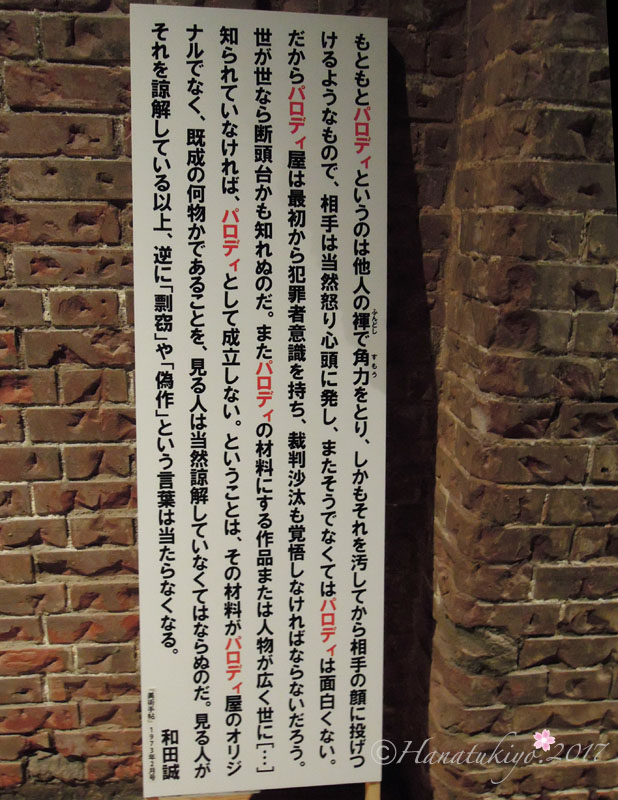 もともとパロディというのは他人の褌で角力をとり、しかもそれを汚してから相手の顔に投げつ
ふんどし
すもう
けるようなもので、相手は当然怒り心頭に発し、またそうでなくてはパロディは面白くない。
だからパロディ屋は最初から犯罪者意識を持ち、裁判沙汰も覚悟しなければならないだろう。
世が世なら断頭台かも知れぬのだ。またパロディの材料にする作品または人物が広く世に[…]
知られていなければ、パロディとして成立しない。ということは、その材料がパロディ屋のオリジ
ナルでなく、既成の何物かであることを、見る人は当然諒解していなくてはならぬのだ。見る人が
それを諒解している以上、逆に「剽窃」や「偽作」という言葉は当たらなくなる。
和田誠
『美術手帖』1973年2月号
©Hanatukiyo.2017